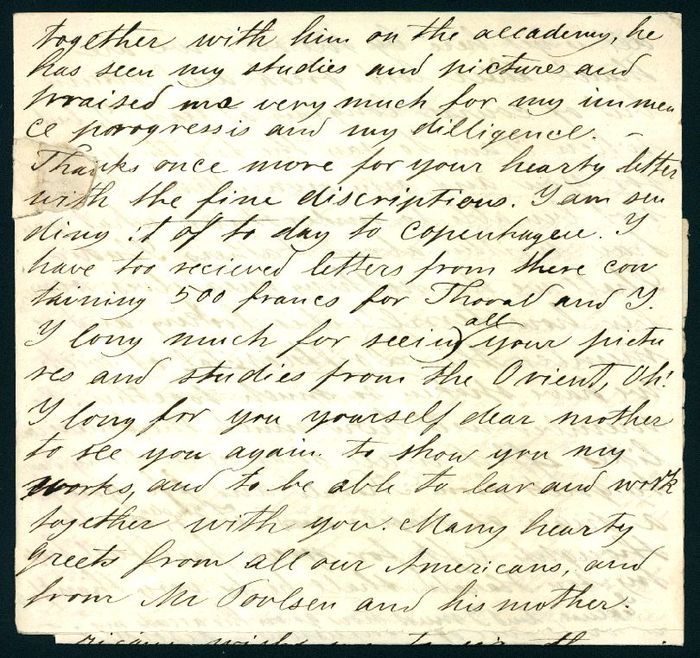 together with him on the accademy, he
has seen my studies and pictures and
praised me very much for my immen
ce porogressis and my dilligence. –
Thanks once more for your hearty letter
with the fine discriptions. I am sen
ding it of to day to Copenhagen. I
have too recieved letters from there con
taining 500 francs for Thorald and I.
I long much for seeing all your pictu
res and studies from the Orient, Oh!
I long for you yourself dear mother
to see you again. to show you my
works, and to be able to lear and work
together with you. Many hearty
greets from all our Americans, and
from Mr Poulsen and his mother.